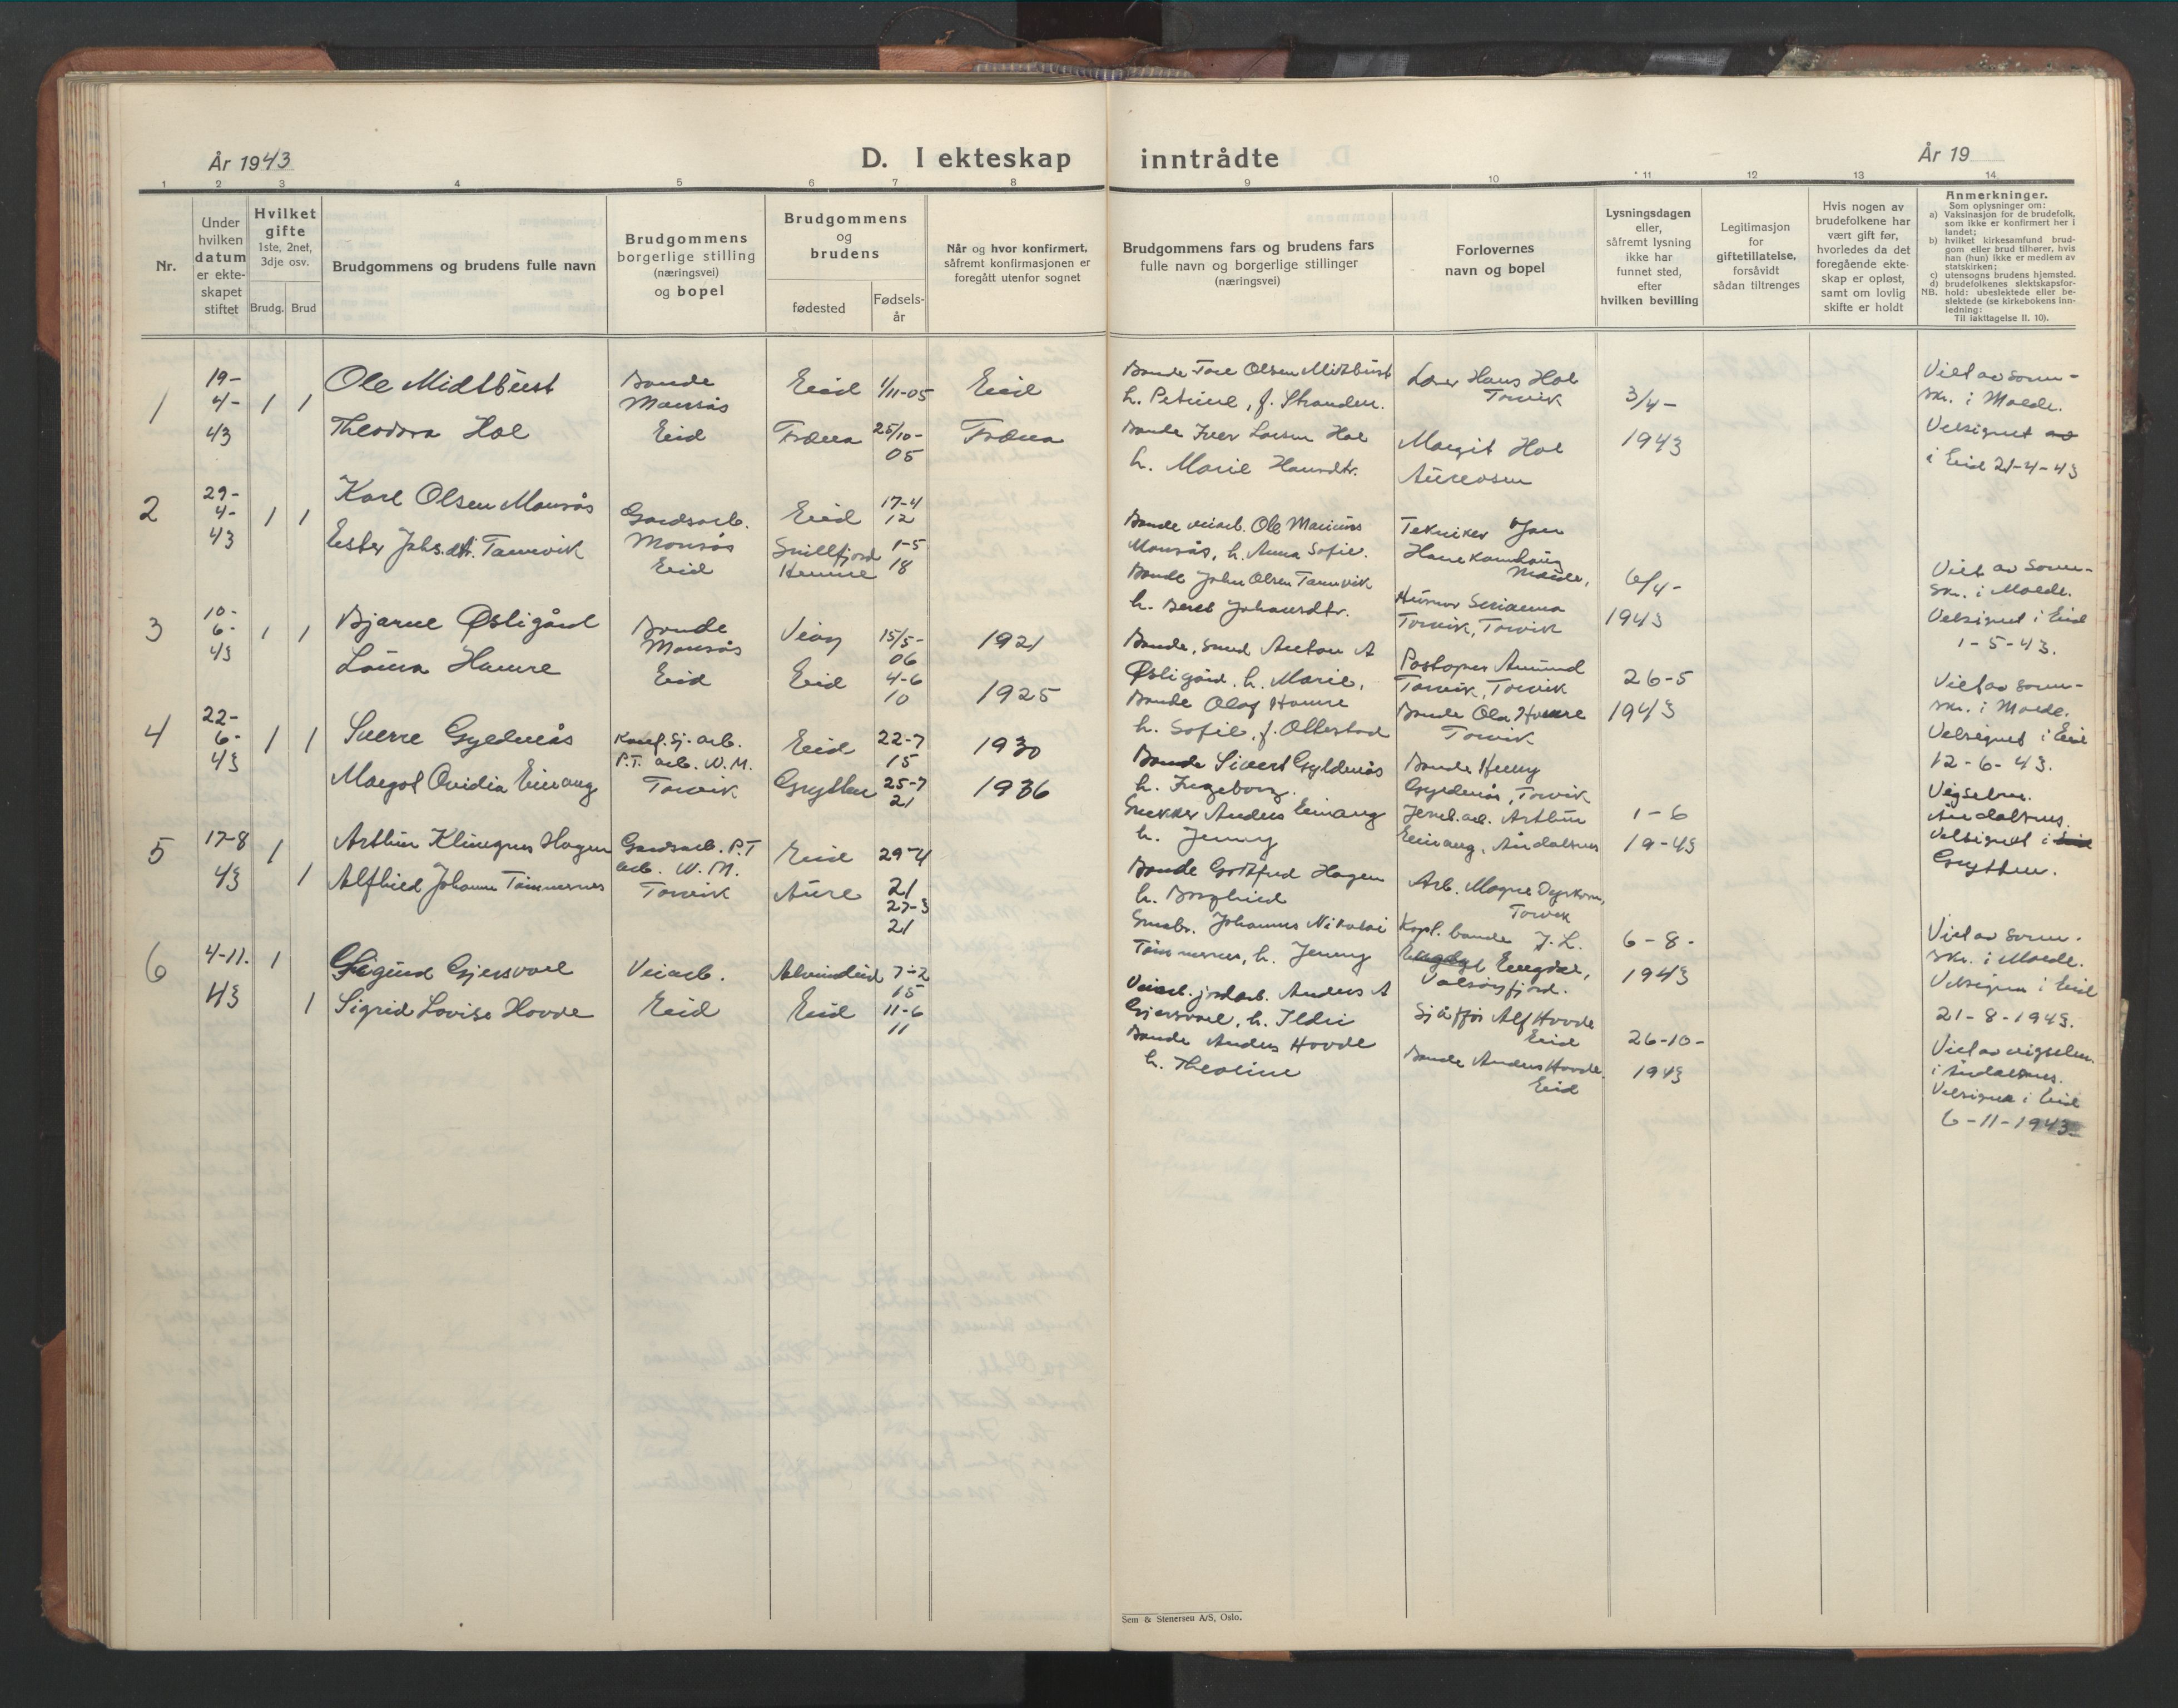 År 1943
D. I ekteskap inntrådte
År 19
1 2 3 4 5 6 7 8 9 10 11 12 13 14
Nr.
Under hvilken datum er ekte-skapet stiftet
Hvilket gifte
1ste, 2net, 3dje osv.
Brudg. Brud
Brudgommens og brudens fulle navn
Brudgommens borgerlige stilling (næringsvei) og bopel
Brudgommens og brudens
fødested
Fødsels-år
Når og hvor konfirmert, såfremt konfirmasjonen er foregått utenfor sognet
Brudgommens fars og brudens fars fulle navn og borgerlige stillinger (næringsvei)
Forlovernes navn og bopel
Lysningsdagen eller, såfremt lysning ikke har funnet sted, efter hvilken bevilling
Legitimasjon for giftetillatelse, forsåvidt sådan tiltrenges
Hvis nogen av brudefolkene har vært gift før, hvorledes da det foregående ekte-skap er opløst, samt om lovlig skifte er holdt
Anmerkninger.
Som oplysninger om:
a) Vaksinasjon for de brudefolk, som ikke er konfirmert her i landet;
b) hvilket kirkesamfund brud-gom eller brud tilhører, hvis han (hun) ikke er medlem av statskirken;
c) utensogns brudens hjemsted.
d) brudefolkenes slektskapsfor-hold: ubeslektede eller be-slektede (se kirkebokens inn-ledning:
NB.
Til iakttagelse II. 10).
1
19-
4-
43
1 1
Ole Midtbust
Theodora Hol
Bonde
Monsås
Eid
Eid 1/11-05 Eid
Fræna 25/10-05 Fræna
Bonde Tore Olsen Midtbust
h. Petrine, f. Stranden.
Bonde Iver Larsen Hol
h. Marie Hansdtr.
Lærer Hans Hol
Torvik
Margit Hol
Aureosen
3/4-
1943
Viet av soren-
skr. i Molde.
Velsignet
i Eid 21-4-43
2
29-
4-
43
1 1
Karl Olsen Monsås
Ester Johs.dt. Tannvik
Gardsarb.
Monsås
Eid
Eid 17-4
12
Snillfjord 1-5
Hemne 18
Bonde veiarb. Ole Marius
Monsås, h. Anna Sofie.
Bonde John Olsen Tannvik
h. Beret Johansdtr.
Tekniker Jon
Hanekamhaug
Molde,
Husmor Serianna
Torvik, Torvik
6/4-
1943
Viet av soren-
skr. i Molde.
Velsignet i Eid
1-5-43.
3
10-
6-
43
1 1
Bjarne Østigård
Laura Hamre
Bonde
Monsås
Eid
Veøy 15/5-
06
1921
Eid 4-6
10
1925
Bonde, smed Anton A
Østigård, h. Marie,
Bonde Olaf Hamre
h. Sofie, f. Ottestad
Postopner Amund
Torvik, Torvik
Bonde Ola Hamre
Torvik
26-5
1943
Viet av soren-
skr. i Molde.
Velsignet i Eid
12-6-43.
4
22-
6-
43
1 1
Sverre Gyldenås
Margot Ovidia Einang
P.T. arb. W.M.
Torvik
Eid 22-7
15
1930
Grytten 25-7
21
1936
Bonde Sivert Gyldenås
h. Ingeborg.
Snekker Anders Einang
h. Jenny
Bonde Henry
Gyldenås, Torvik
Jernb.arb. Arthur
Einang, Åndalsnes
1-6
19-43
Vigselm.
Åndalsnes.
Velsignet i
Grytten.
5
17-8
43
1
1
Arthur Klingnes Hagen
Alfhild Johanne Tømmernes
Gardsarb. P.T
arb. W.M.
Torvik
Eid 29-4
21
Aure 27-3
21
Bonde Godtfred Hagen
h. Borghild
Småbr. Johannes Nikolai
Tømmernes, h. Jenny
Arb. Magne Dyrkorn,
Torvik
J. L.
Engdal,
Valsøyfjord.
6-8-
1943
Viet av soren-
skr. i Molde.
Velsignet i Eid
21-8-1943.
6
4-11.
43
1
1
Sigurd Gjersvoll
Sigrid Lovise Hovde
Veiarb.
Eid
7-2
15
Eid 11-6
11
Veiarb. jordarb. Anders A
Gjersvoll, h. Ildri
Bonde Anders Hovde
h. Theoline
Sjåffør Alf Hovde
Eid
Bonde Anders Hovde.
Eid
26-10-
1943
Viet av vigselsm.
i Åndalsnes.
Velsignet i Eid
6-11-1943
Sem & Stenersen A/S, Oslo.